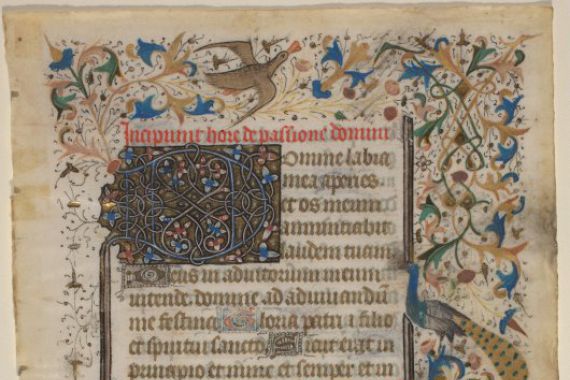 Incipiunt hore de passione domini
Domine labia
mea aperies
et os meum
annuntiabit
laudem tuam
Deus in adiutorium meum
intende domine ad adiuuandũ
me festina Gloria patri ⁊ filio
et spiritui sancto Sicut erat in
principio et nunc et semper et in